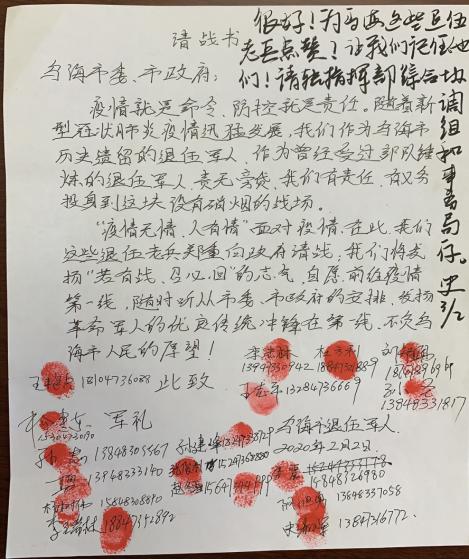 请战书
乌海市委、市政府：
疫情就是命令、防控就是责任。随着新
型冠状肺炎疫情迅猛发展，我们作为乌海市
历史遗留的退伍军人，作为曾经受过部队锤
炼的退伍军人，责无旁贷、我们有责任、有义务
投身到这块没有硝烟的战场。
“疫情无情、人有情”面对疫情，在此，我们
这些退伍老兵郑重向政府请战：我们将发
扬“若有战、召必回”的志气，自愿前往疫情
第一线，随时听从市委、市政府的安排，发扬
革命军人的优良传统，冲锋在第一线，不负乌
海市人民的厚望！
此致
军礼
乌海市退伍军人
2020年2月2日
很好！为乌海这些退伍
老兵点赞！让我们记住他
们！请转指挥部综合协
调组和事务局存。史
3/2
13947330942
18104736088
13284736669
13948331817
13848305567
13948333140
15247368880
15848308890
18847352892
14848326980
13648337058
13847316772